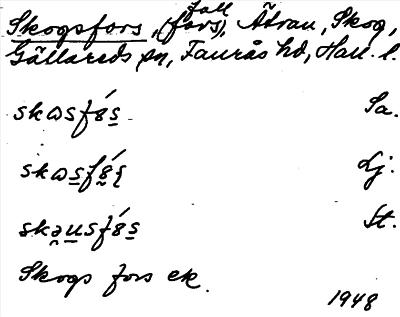 Skogsfors, (fors), fall Ätran, Skog,
Gällareds sn, Faurås hd, Hall. l.
skɷsfɞ́s Sa.
skɷsfɞ́ʂ Lj.
skəusfɞ́s St.
Skogs fors ek.
1948